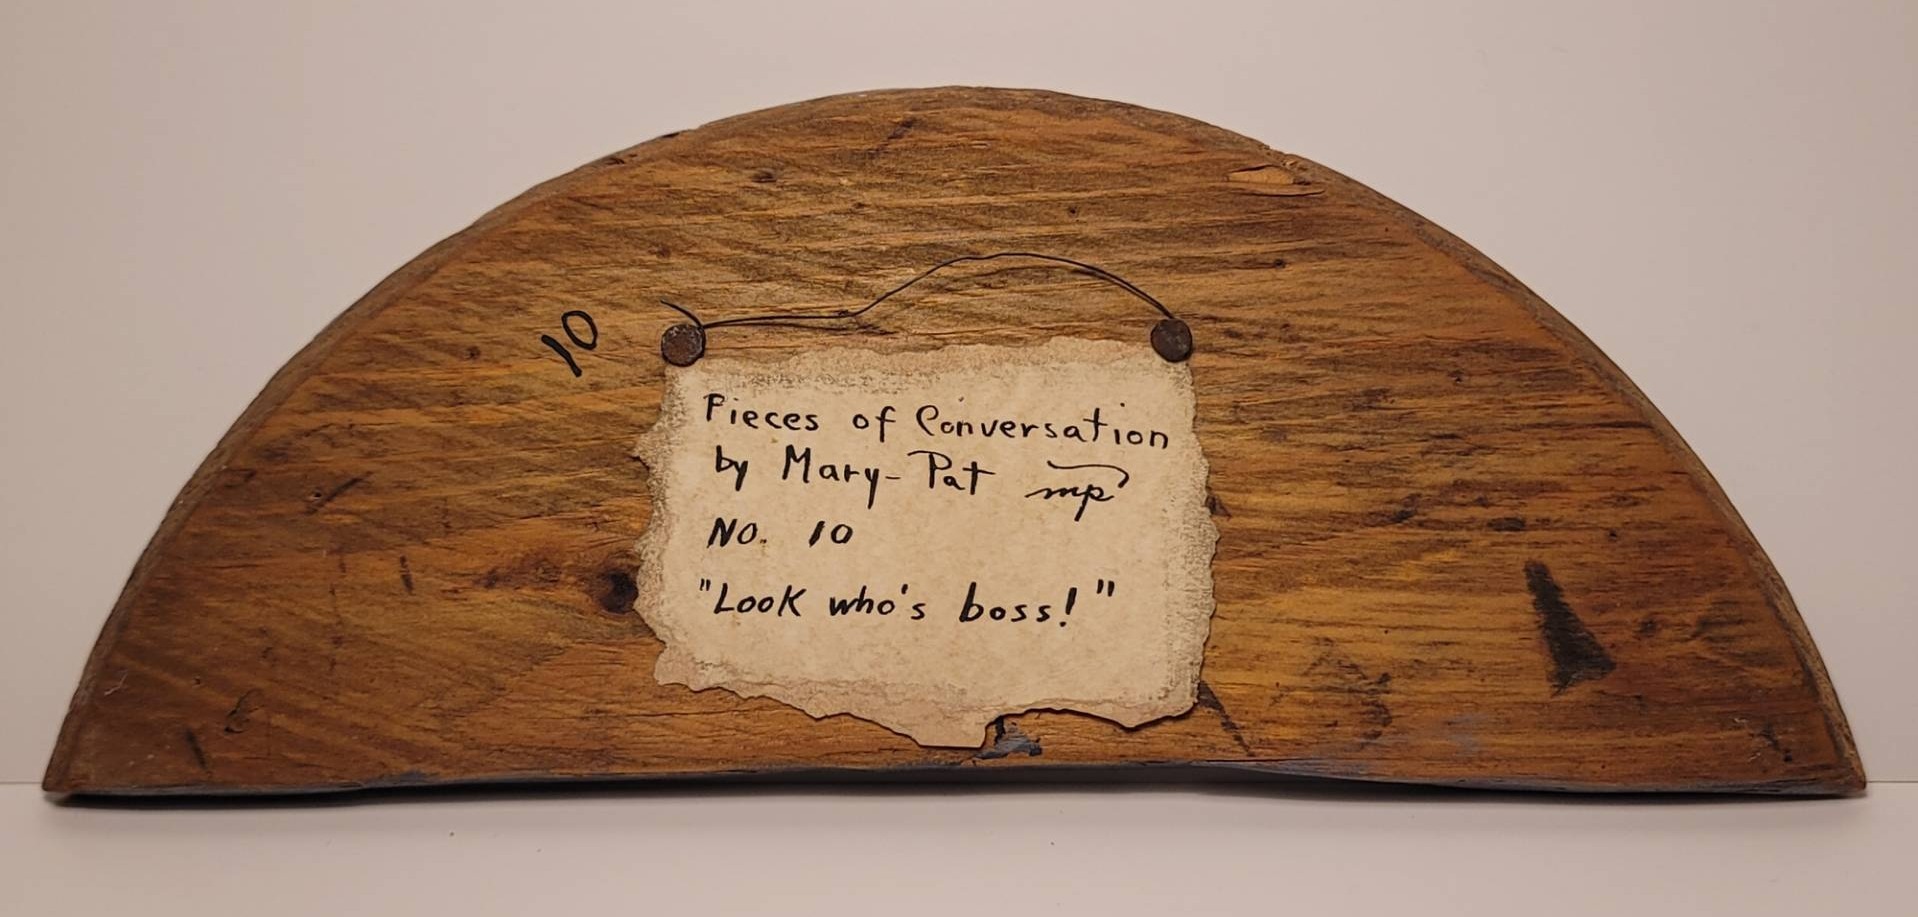 10
Pieces of Conversation
by Mary-Pat mp
No. 10
"Look who's boss!"